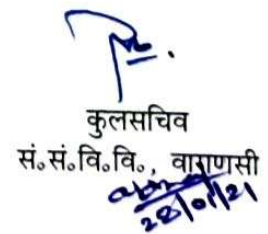 कुलसचिव
सं॰सं॰वि॰वि॰, वाराणसी
28/01/21